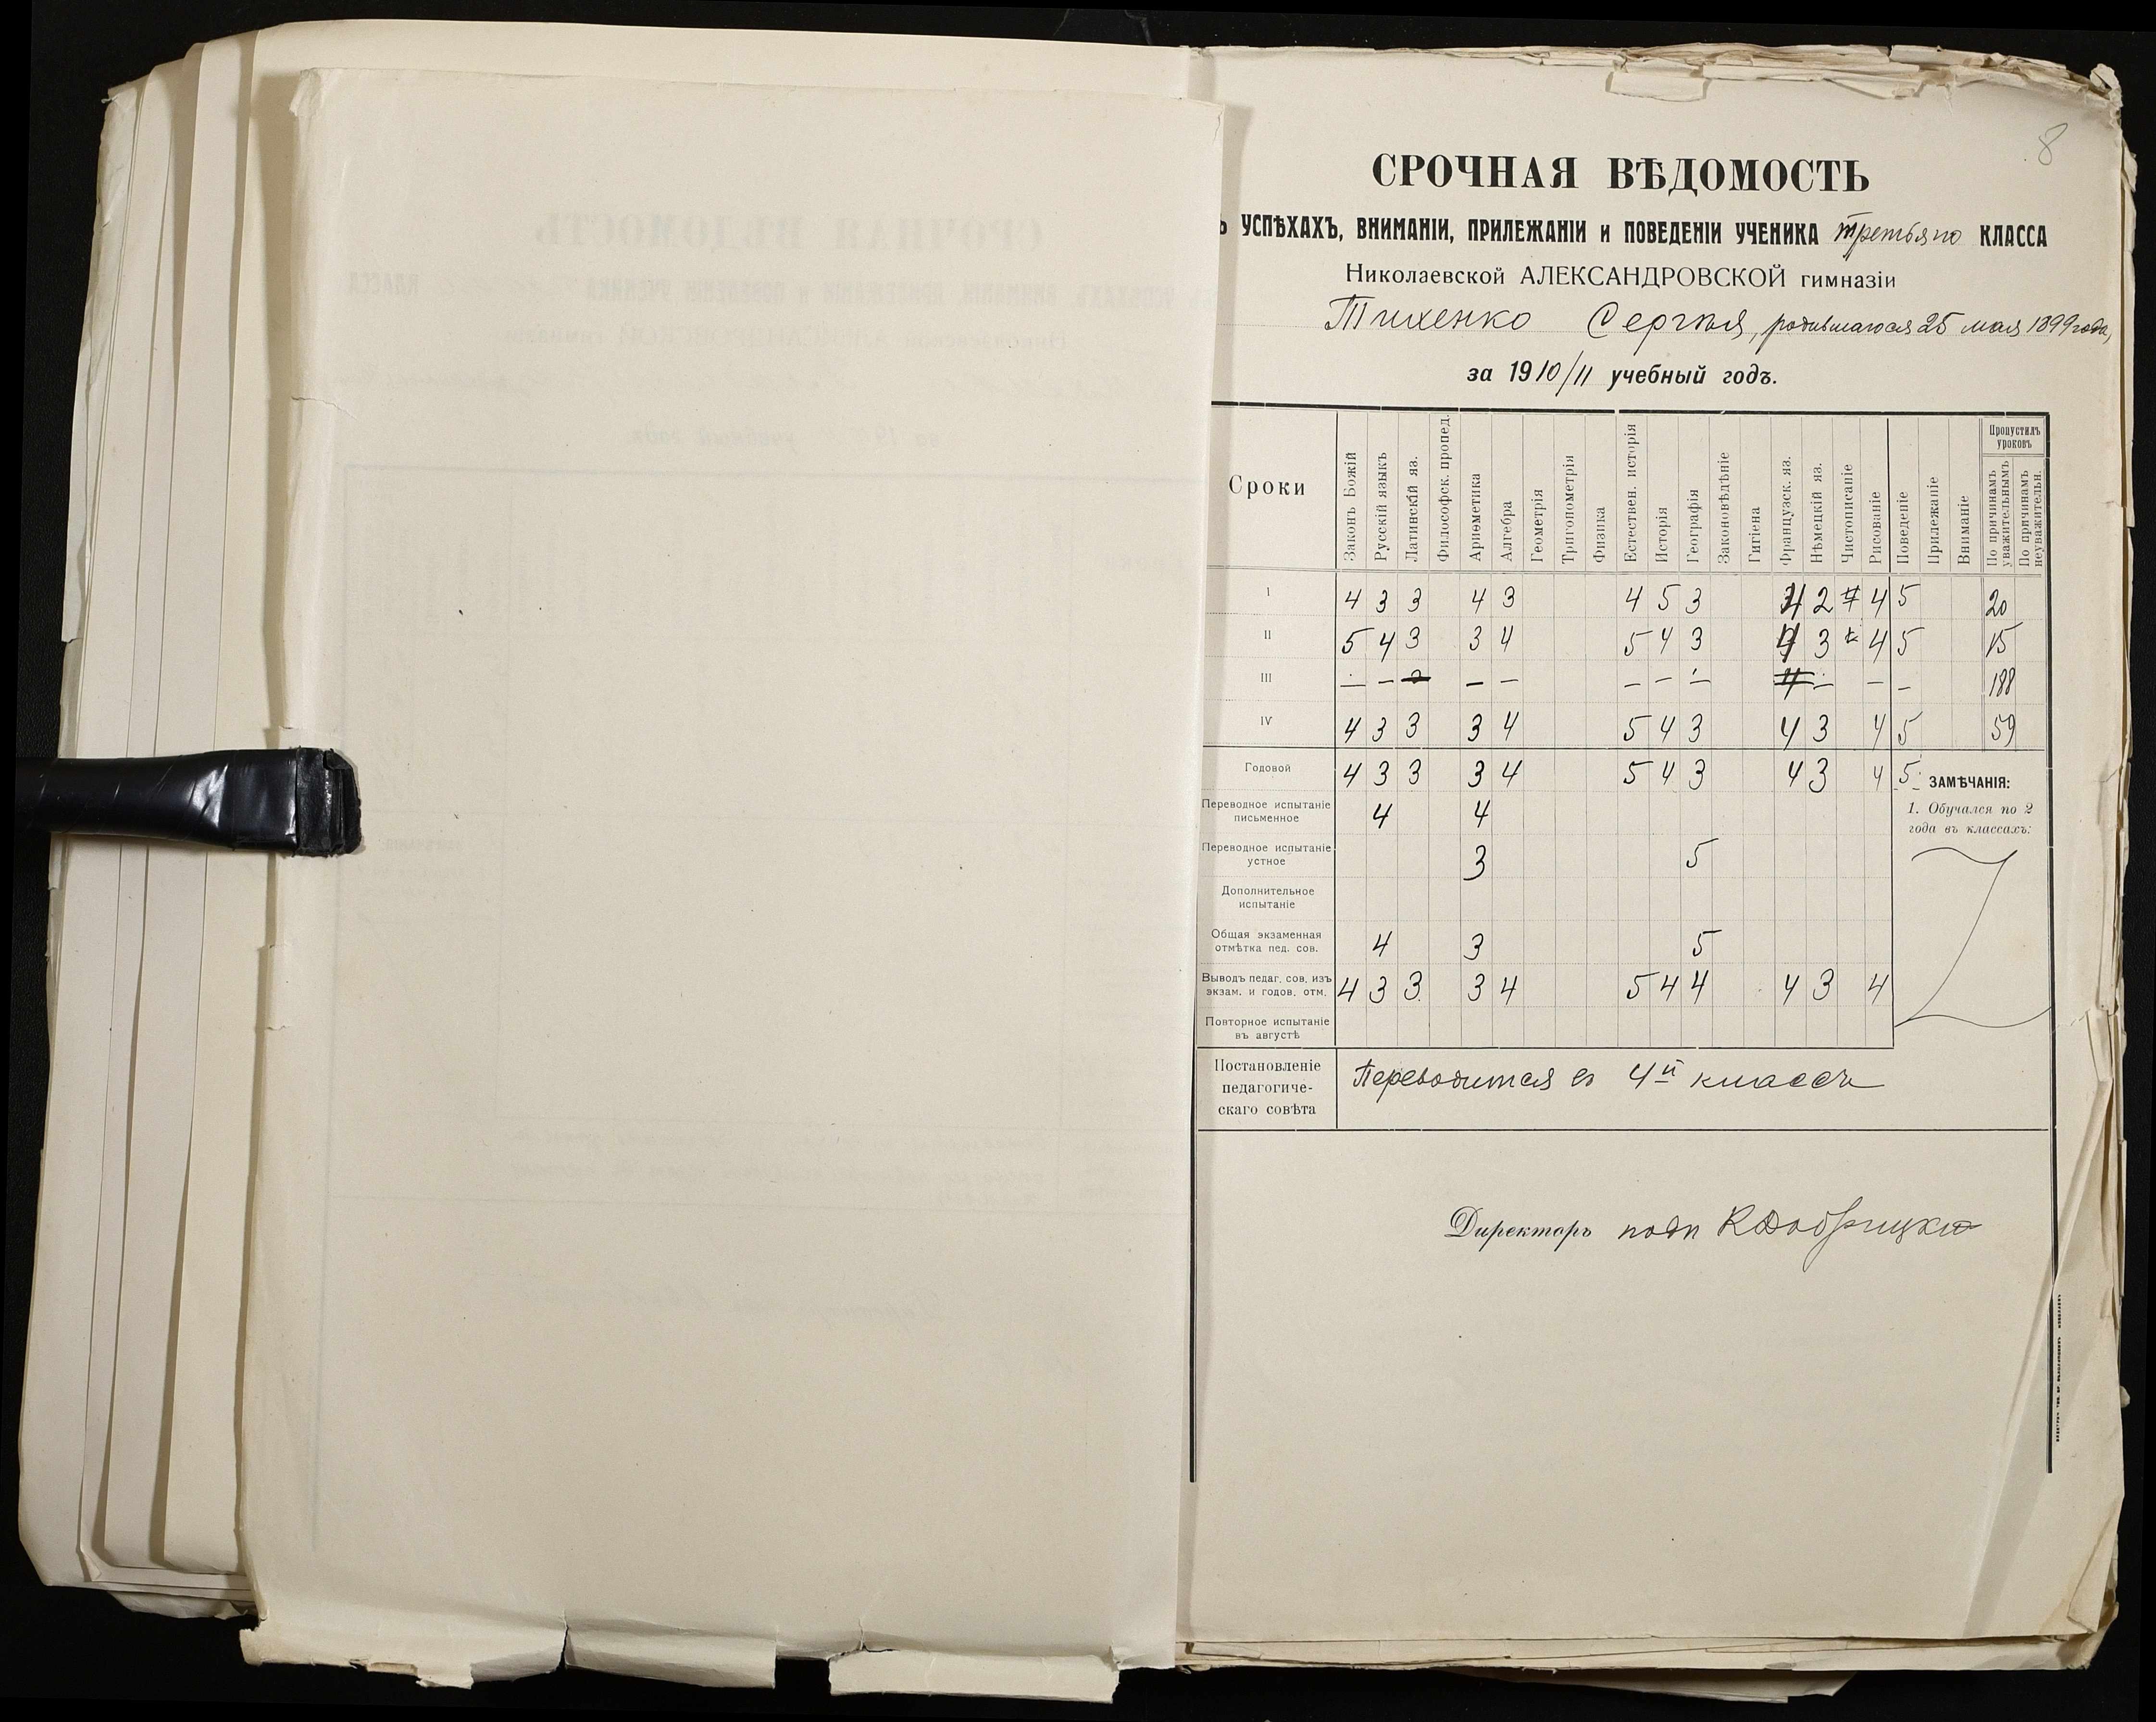 8
СРОЧНАЯ ВѢДОМОСТЬ
Ъ УСПѢХАХЪ, ВНИМАНІИ, ПРИЛЕЖАНІИ и ПОВЕДЕНІИ УЧЕНИКА третьяго КЛАССА
Николаевской АЛЕКСАНДРОВСКОЙ гимназіи
Тихенко Сергѣя, родившагося 25 мая 1899 года,
за 1910/11 учебный годъ.
Сроки
Законъ Божій
Русскій языкъ
Латинскій яз.
Философск. пропед.
Ариѳметика
Алгебра
Геометрія
Тригонометрія
Физика
Естествен. исторія
Исторія
Географія
Законовѣдѣніе
Гигіена
Французск. яз.
Нѣмецкій яз.
Чистописаніе
Рисованіе
Поведеніе
Прилежаніе
Вниманіе
Пропустилъ уроковъ
По причинамъ уважительнымъ
По причинамъ неуважительн.
I 4 3 3 4 3 4 5 3 4 2 4 5 20
II 5 4 3 3 4 5 4 3 4 3 4 5 15
III — — — — — — — — — — — 188
IV 4 3 3 3 4 5 4 3 4 3 4 5 59
Годовой 4 3 3 3 4 5 4 3 4 3 4 5
ЗАМѢЧАНІЯ:
1. Обучался по 2
года въ классахъ:
Переводное испытаніе
письменное 4 4
Переводное испытаніе
устное 3 5
Дополнительное
испытаніе
Общая экзаменная
отмѣтка пед. сов. 4 3 5
Выводъ педаг. сов. изъ
экзам. и годов. отм. 4 3 3 3 4 5 4 4 4 3 4
Повторное испытаніе
въ августѣ
Постановленіе
педагогиче-
скаго совѣта
Переводится въ 4й классъ
Директоръ подп К Добрицкій